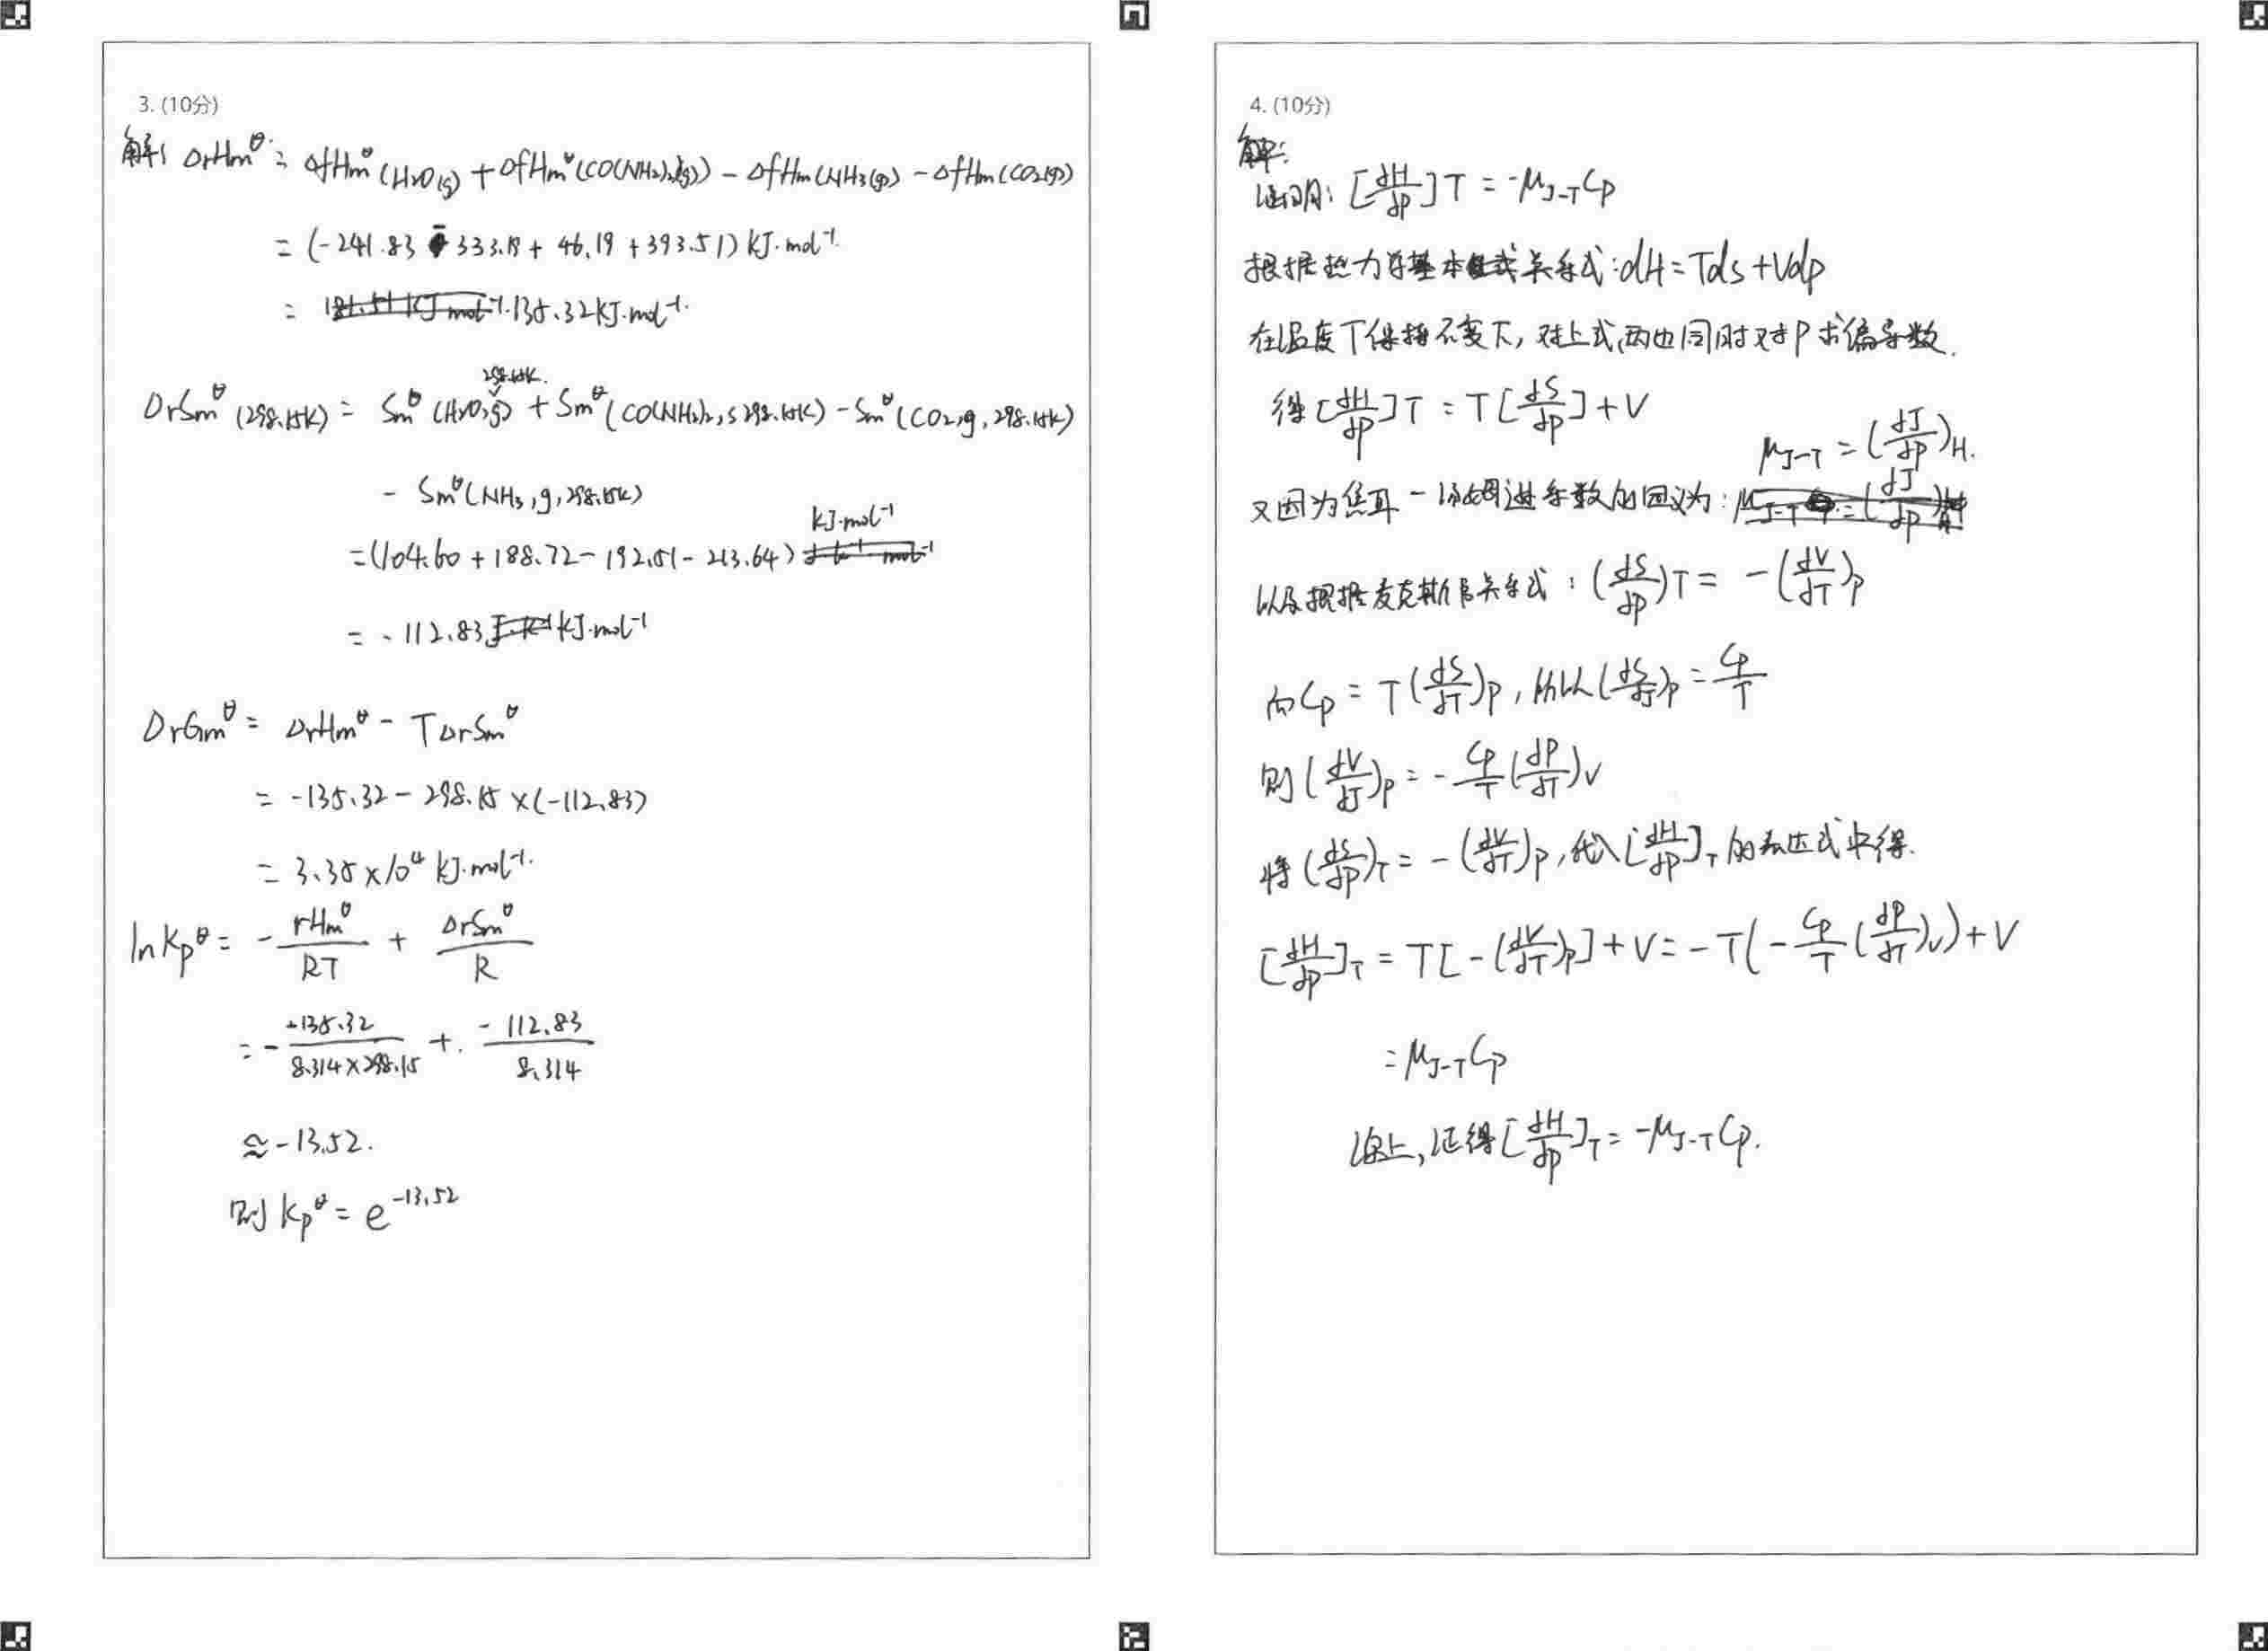 3. (10分)
解: ΔrHm^θ = ΔfHm^θ(H2O(g)) + ΔfHm^θ(CO(NH2)2(g)) - ΔfHm(NH3(g)) - ΔfHm(CO2(g))
= (-241.83 - 333.19 + 46.19 + 393.51) kJ·mol⁻¹.
= 135.32kJ·mol⁻¹.
298.15K.
ΔrSm^θ(298.15K) = Sm^θ(H2O,g) + Sm^θ(CO(NH2)2,s 298.15K) - Sm^θ(CO2,g,298.15K)
- Sm^θ(NH3,g,298.15K)
kJ·mol⁻¹
=(104.60 + 188.72 - 192.51 - 213.64)
= -112.83 kJ·mol⁻¹
ΔrGm^θ = ΔrHm^θ - TΔrSm^θ
= -135.32 - 298.15×(-112.83)
= 3.35×10⁴ kJ·mol⁻¹.
lnKp^θ = - rHm^θ/RT + ΔrSm^θ/R
= - -135.32/8.314×298.15 + -112.83/8.314
≈ -13.52.
则 Kp^θ = e^-13.52
4. (10分)
解:
证明: [∂H/∂p]T = -μJ-TCp
根据热力学基本关系式:dH=Tds+Vdp
在温度T保持不变下, 对上式,两边同时对P求偏导数.
得[∂H/∂p]T = T[∂S/∂p]+V
μJ-T = (∂J/∂p)H.
又因为焦耳-汤姆逊系数的因义为:
以及根据麦克斯韦关系式: (∂S/∂p)T = -(∂V/∂T)p
而Cp = T(∂S/∂T)p, 所以(∂S/∂T)p = Cp/T
则(∂V/∂J)p = -Cp/T(∂P/∂T)V
将(∂S/∂p)T = -(∂V/∂T)p,代入[∂H/∂p]T的表达式中得.
[∂H/∂p]T = T[-(∂V/∂T)p]+V = -T(-Cp/T(∂P/∂T)V)+V
= μJ-TCp
综上,证得[∂H/∂p]T = -μJ-TCp.